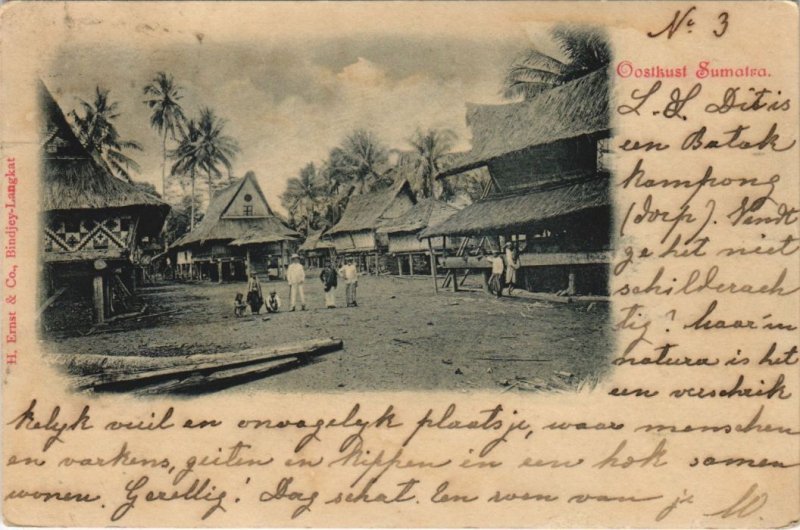 No 3
Oostkust Sumatra.
H. Ernst & Co., Bindjey-Langkat
L. S. Dit is
een Batak
kampong
(dorp). Vindt
ge het niet
schilderach
tig? haar'm
natura is het
een verschrik
kelijk vuil en onoogelijk plaatsje, waar menschen
en varkens, geiten en kippen in een hok samen
wonen. Gezellig! Dag schat. Een zoen van je
W.